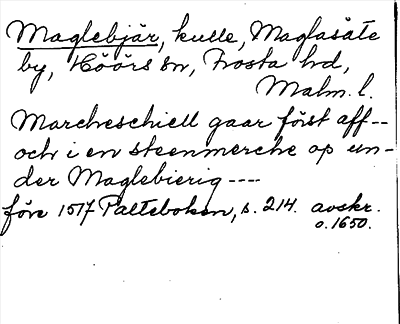 Maglebjär, kulle, Maglasäte
by, Höörs sn, Frosta hd,
Malm. l.
Marcheschiell gaar först aff--
och i en steenmerche op un-
der Maglebierig ----
före 1517 Palteboken, s. 214. avskr.
o. 1650.